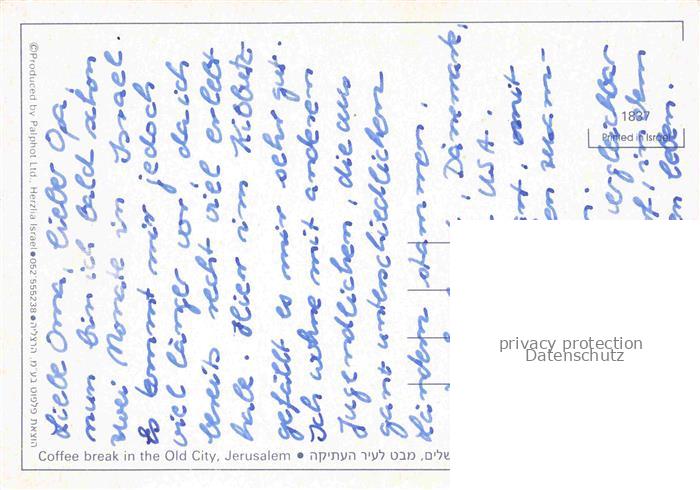 Liebe Oma, lieber Opa,
nun bin ich bald schon
zwei Monate in Israel.
Es kommt mir jedoch
viel länger vor, da ich
bereits recht viel erlebt
habe. Hier im Kibbutz
gefällt es mir sehr gut.
Ich wohne mit anderen
Jugendlichen, die aus
ganz unterschiedlichen
Ländern stammen,
Dänemark,
USA.
mit
en
vergleichbar
in dem
en leben.
©Produced by Palphot Ltd., Herzlia Israel • 052 555238 • הוצאת פלפוט בע״מ, הרצליה
1837
Printed in Israel
privacy protection
Datenschutz
Coffee break in the Old City, Jerusalem • שלים, מבט לעיר העתיקה